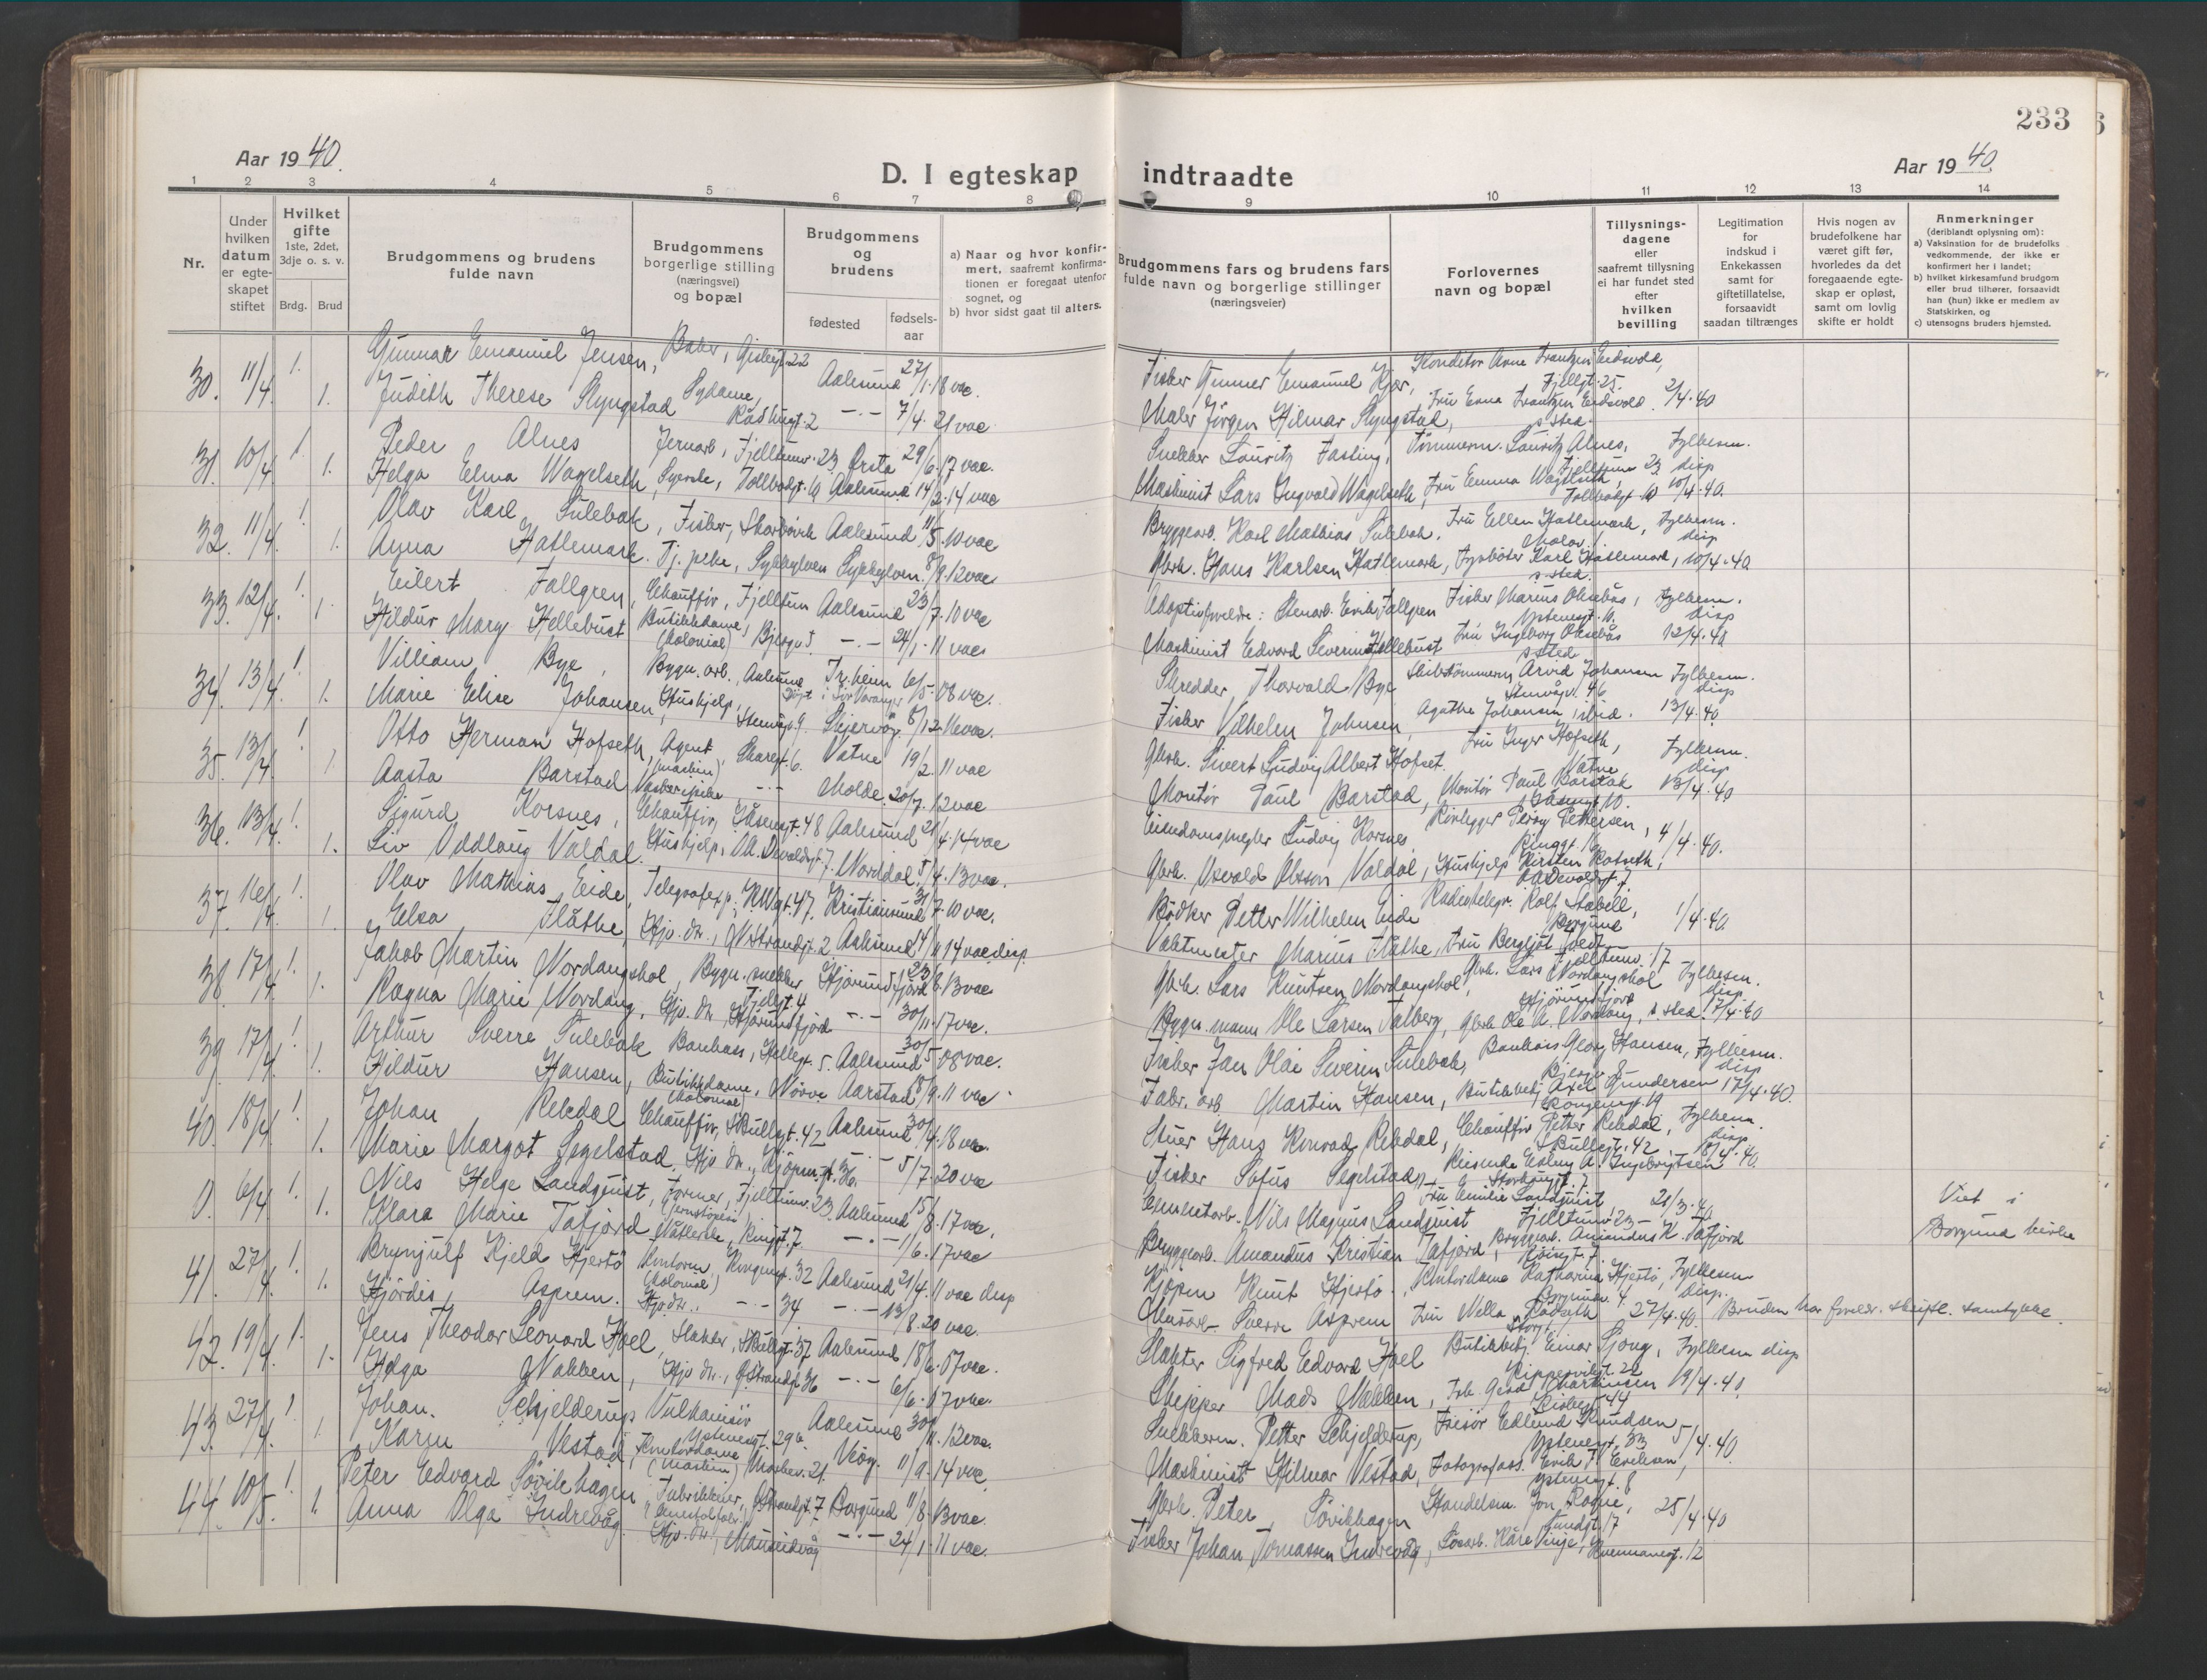 233
Aar 1940.
D. I egteskap indtraadte
Aar 1940
1 2 3 4 5 6 7 8 9 10 11 12 13 14
Nr.
Under hvilken datum er egteskapet stiftet
Hvilket gifte 1ste, 2det, 3dje o. s. v.
Brdg. Brud
Brudgommens og brudens fulde navn
Brudgommens borgerlige stilling (næringsvei) og bopæl
Brudgommens og brudens
fødested fødselsaar
a) Naar og hvor konfirmert, saafremt konfirmationen er foregaat utenfor sognet, og
b) hvor sidst gaat til alters.
Brudgommens fars og brudens fars fulde navn og borgerlige stillinger (næringsveier)
Forlovernes navn og bopæl
Tillysningsdagene eller saafremt tillysning ei har fundet sted efter hvilken bevilling
Legitimation for indskud i Enkekassen samt for giftetillatelse, forsaavidt saadan tiltrænges
Hvis nogen av brudefolkene har været gift før, hvorledes da det foregaaende egteskap er opløst, samt om lovlig skifte er holdt
Anmerkninger (deriblandt oplysning om):
a) Vaksination for de brudefolks vedkommende, der ikke er konfirmert her i landet;
b) hvilket kirkesamfund brudgom eller brud tilhører, forsaavidt han (hun) ikke er medlem av Statskirken, og
c) utensogns bruders hjemsted.
30. 11/4. 1. Gunnar Emanuel Jensen, Baker, 22 Aalesund 27/1.18 vac. Fisker Gunnar Emanuel Konditor Arne Frantzen Eidsvold, Fjellgt. 25.
1. Judith Therese Slyngstad Sydame, Rådhusgt. 2 —.— 7/4. 21 vac. Maler Jørgen Hilmar Slyngstad, Fru Erna Frantzen Eidsvold s. sted. 2/4.40
31. 10/4 1. Peder Alnes Jernarb., Fjelltunv. 23, Ørsta 29/6.17 vac. Snekker Lauritz Fasting, Tømmerm. Lauritz Alnes, Fjelltunv. 23. Fylkesm. disp
1. Helga Elma Wagelseth, Syerske, Tollbodgt. 10, Aalesund 14/2.14 vac Maskinist Lars Ingvald Wagelseth, Fru Emma Wagelseth, Tollbodgt 10 10/4.40.
32. 11/4. 1. Olav Karl Sulebak, Fisker, Skarbøvik Aalesund 11/5.10 vac Bryggearb. Karl Mathias Sulebak, Fru Ellen Hatlemark, Fylkesm. disp
1. Hatlemark. Tj. pike, Sykkylven Sykkylven. 8/9.12 vac Gbrk. Hans Karlsen Hatlemark, Karl Hatlemark, s. sted. 10/4.40
33. 12/4. 1. Eilert Fallgren, Chauffør, Fjelltun Aalesund 23/7.10 vac Adoptivforeldre: Erik Fallgren Fisker Marius Oksebås, Ystenesgt. 10. Fylkesm. disp
1. Hildur Mary Hellebust Butikkdame, (Kolonial) —.— 24/1.11 vac Maskinist Edvard Severin Hellebust Fru Ingeborg Oksebås s. sted 12/4.40
34. 13/4. 1. Villiam Bye, Bygn. arb., Aalesund Tr.heim 6/5.08 vac. Skredder Thorvald Bye Arvid Johansen Fylkesm. disp
1. Marie Elise Johansen, Hushjelp, Skjervøy 8/12.16 vac. Fisker Vilhelm Johansen, Agathe Johansen, ibid. 13/4.40.
35. 13/4 1. Otto Herman Hofseth, Agent, (maskin) 6. Vatne 19/2.11 vac Gbrk. Sivert Ludvig Albert Hofset. Fru Inger Hofseth, Vatne Fylkesm. disp
1. Aasta Barstad —.— Molde. 20/7.12 vac Montør Paul Barstad, Montør Paul Barstad 13/4.40
36. 13/4. 1. Sigurd Korsnes, Chauffør, 48 Aalesund 21/4.14 vac Eiendomsmegler Ludvig Korsnes, Rørlegger Percy Pettersen, 4/4.40.
1. Liv Oddlaug Valdal. Hushjelp, 7. Norddal. 5/4.13 vac. Gbrk. Osvald Olsson Valdal, Hushjelp Kirsten
37. 16/4. 1. Olav Mathias Eide, Telegrafexp. 47. Kristiansund 31/7.10 vac. Bødker Petter Wilhelm Eide Rolf Stabell, Borgund 1/4.40.
1. Elsa Flåthe, Hjv. dr., N. Strandgt. 2 Aalesund 14/11 14 vac. disp. Vaktmester Marius Flåthe, Fru Bergljot Fjelltunv. 17
38. 17/4. 1. Jakob Martin Nordangshol, Bygn. snekker Fjellgt. 4 Hjørundfjord 23/6.13 vac Gbrk. Lars Knutsen Nordangshol, Gbrk. Lars Nordangshol Hjørundfjord Fylkesm. disp.
1. Ragna Marie Nordang, Hjv. dr. Hjørundfjord —.— 30/11.17 vac. Bygn. mann Ole Larsen Gbrk Ole A. Nordang, s. sted. 17/4.40
39. 17/4. 1. Arthur Sverre Sulebak Bankass., 5. Aalesund 30/5.08 vac. Fisker Jan Olai Severin Sulebak, Georg Hansen, Fylkesm. disp
1. Hildur Hansen, Butikkdame, (Kolonial) Nørve Aarstad 18/9.11 vac Fabr. arb. Martin Hansen, Butikkbetj. Axel Gundersen Kongensgt. 19 17/4.40.
40. 18/4. 1. Johan Rekdal Chauffør, 42 Aalesund 30/4.18 vac. Stuer Hans Konrad Rekdal, Chauffør Petter Rekdal, 42 Fylkesm. disp
1. Marie Margot Segelstad, Hjv. dr., Kjøpm.gt. 36. —.— 5/7.20 vac Fisker Sofus Segelstad, Reisende Esberg A. Ingebrigtsen 18/4.40.
0. 6/4 1. Nils Helge Landquist, Former, (jernstøperi) Fjelltunv. 23. Aalesund 15/8.17 vac. Cementarb. Nils Magnus Landquist Fru Emilie Landquist, Fjelltunv. 23 — 20/3.40 Viet i
1. Klara Marie Tafjord 7. —.— 1/6.17 vac Bryggearb. Amandus Kristian Tafjord, Bryggearb. Amandus K. Tafjord Borgund kirke
41. 27/4. 1. Brynjulf Kjeld Hjertø Kontorm. (Kolonial) Kongensgt. 32 Aalesund 21/4.11 vac disp Kjøpm. Knut Hjertø, Kontordame Katharina Hjertø, Fylkesm disp.
1. Hjørdis Asprem. Hjv. dr., —.— 34 —.— 13/8.20 vac. Sverre Asprem Fru Nella 27/4.40. Bruden har foreldr. skriftl. samtykke.
42. 19/4. 1. Jens Theodor Leonard Hoel, Slakter, 37 Aalesund 18/6.07 vac. Slakter Sigfred Edvard Hoel Butikkbetj. Einar Sjong, 22 Fylkesm disp
1. Helga Nakken, Hjv. dr., Ø Strandgt 36 —.— 6/6.07 vac. Skipper Mads Nakken, Martinsen 44 19/4.40.
43. 27/4. 1. Johan Schjelderup Vulkanisør Ystenesgt. 29b Aalesund 30/11.12 vac. Snekkerm. Petter Schjelderup, Frisør Edlund Knudsen Ystenesgt. 33 5/4.40
1. Karen Vestad, Kontordame (maskin) 21. Veøy. 11/9.14 vac. Maskinist Hilmar Vestad, Fotografass. Erik J. Eriksen, Ystenesgt. 8
44. 10/5. 1. Peter Edvard Søvikhagen Fabrikkeier, Ø Strandgt. 7 Borgund 11/8.13 vac. Gbrk. Peter Søvikhagen Handelsm. Jon Rogne, 17 25/4.40
1. Anna Olga Indrevåg. Hjv. dr., Mauseidvåg —.— 24/1.11 vac. Fisker Johan Tomassen Indrevåg, Kåre Vinje, 12